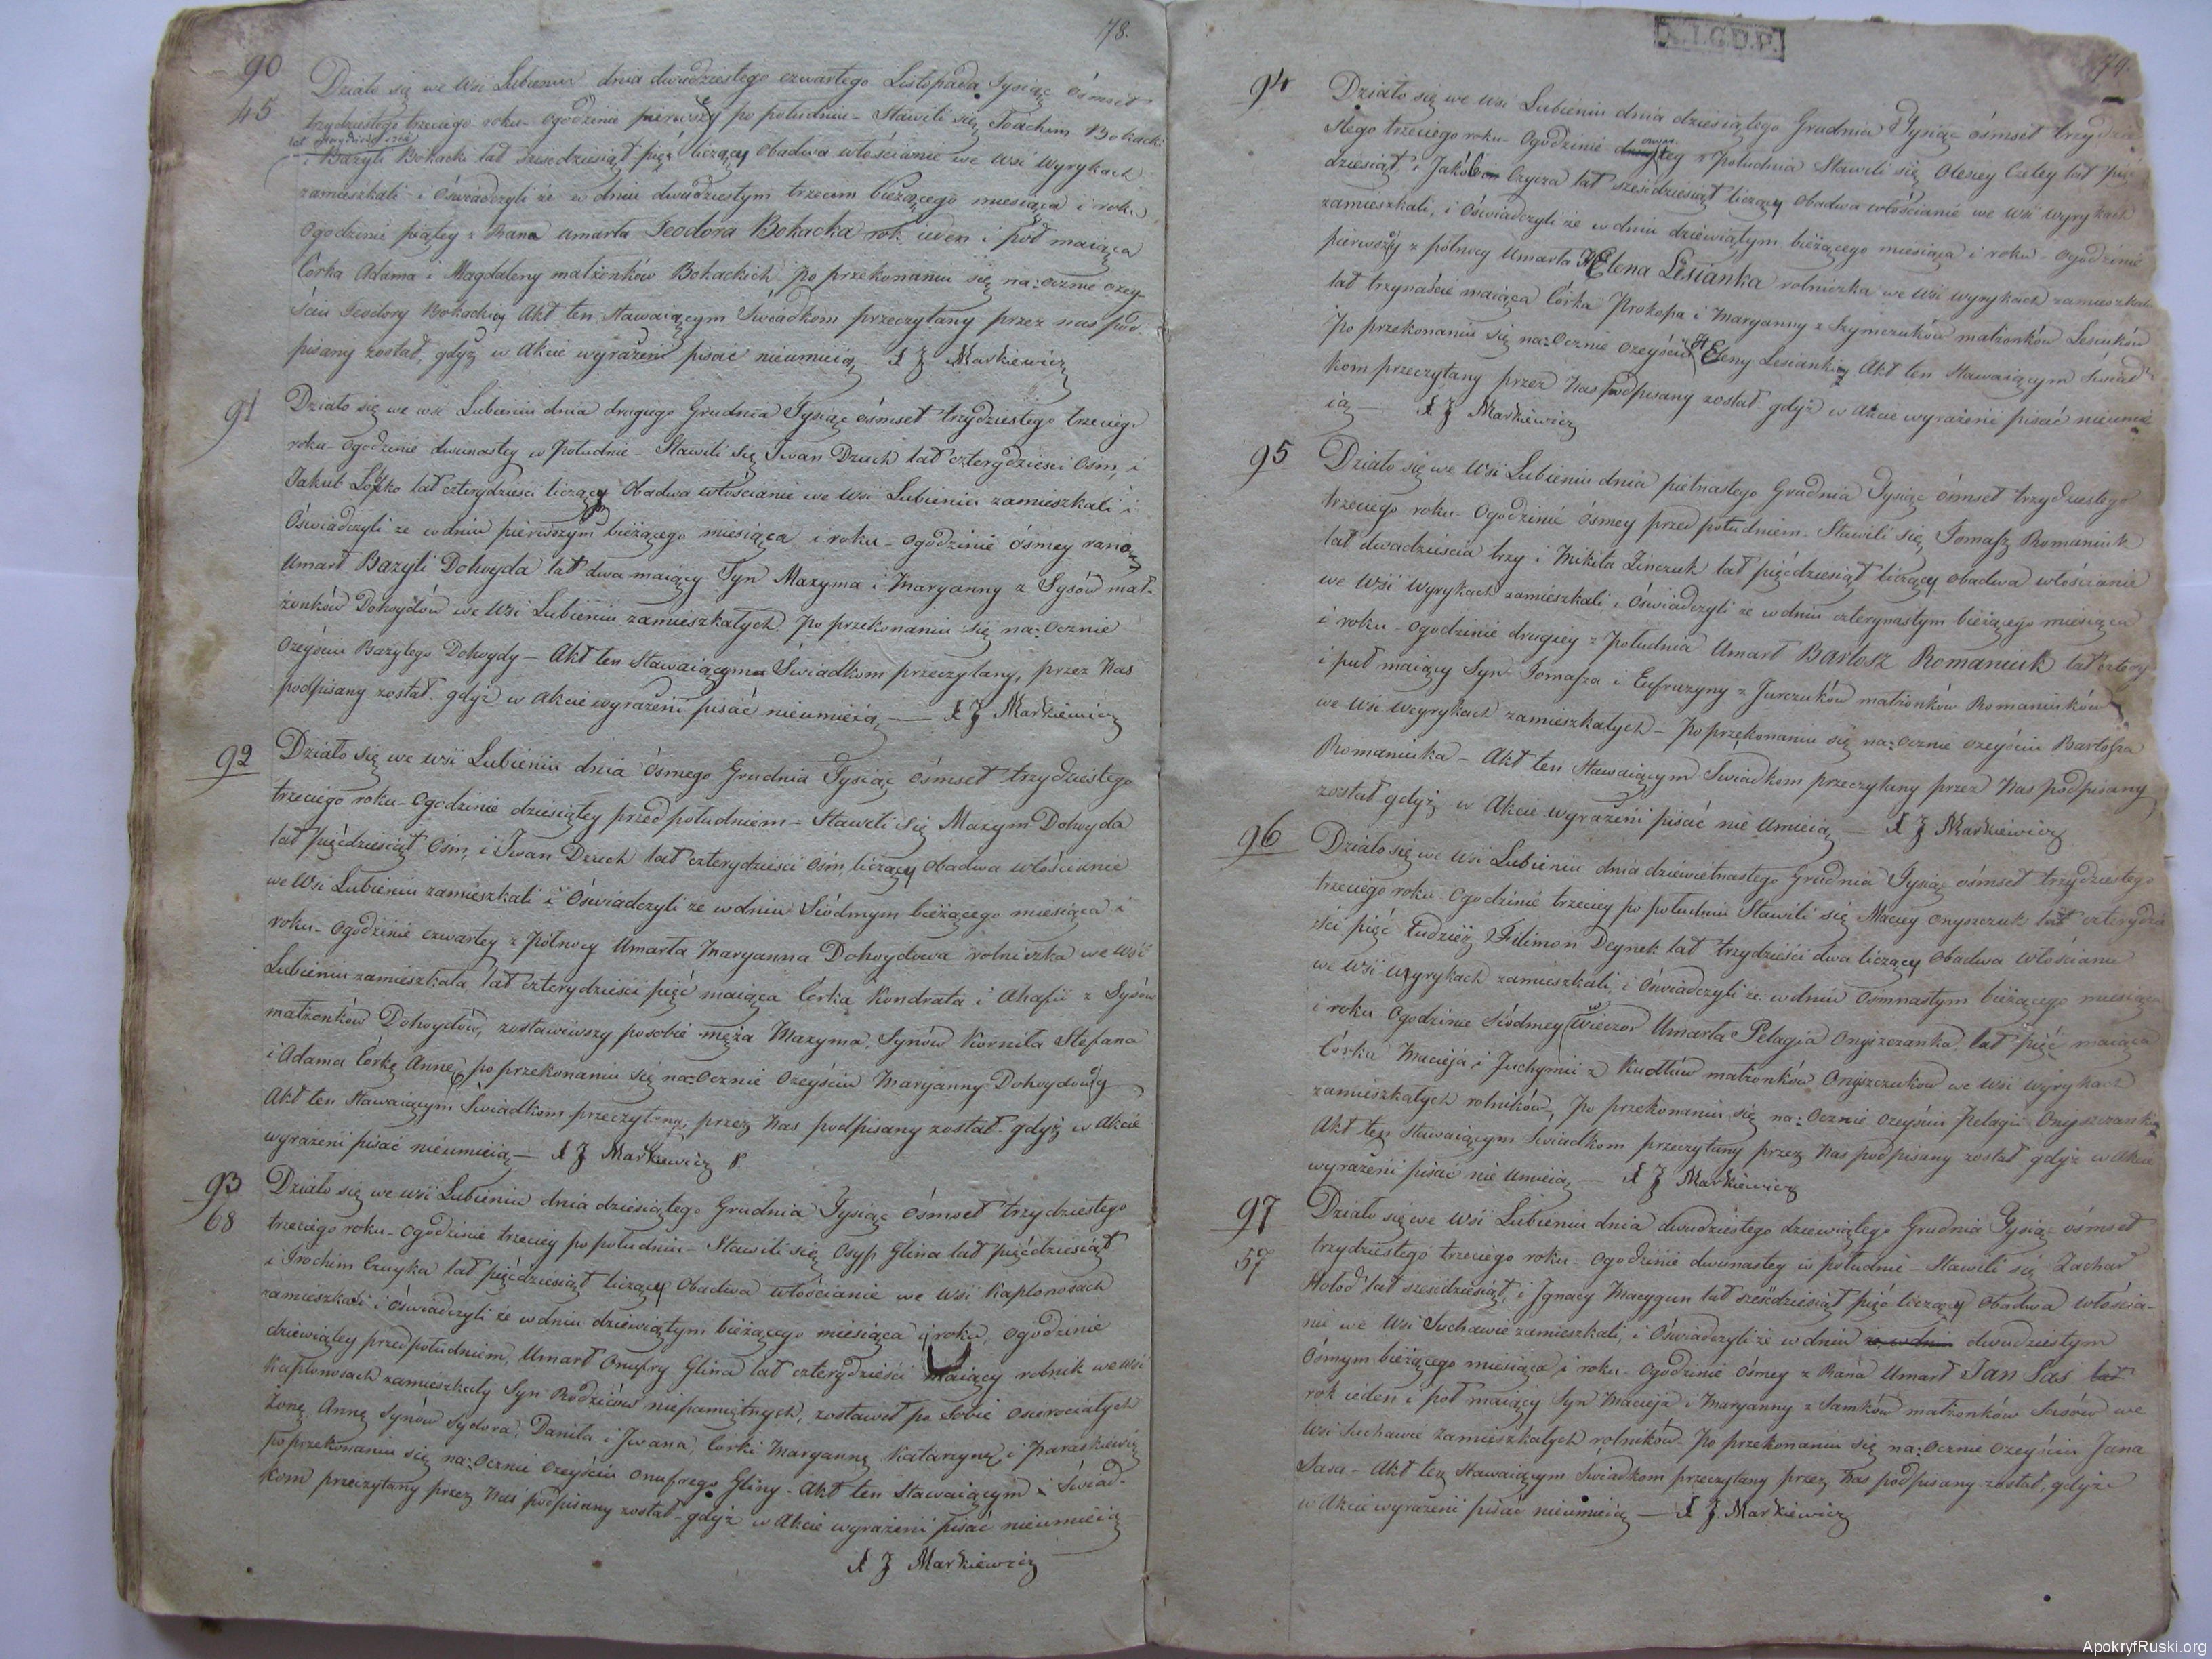 78.
90
45
Działo się we wsi Lubieniu dnia dwudziestego czwartego Listopada Tysiąc ośmset
trzydziestego trzeciego roku - ogodzinie pierwszy po południu - Stawili się Joachim Bokacki
i Bazyli Bokacki lat sześcdziesiąt pięć liczący obadwa włościanie we wsi Wyrykach
zamieszkali i Oświadczyli że w dniu dwudziestym trzecim bieżącego miesiąca i roku
ogodzinie piątey z Rana umarła Teodora Bokacka rok ieden i pół maiąca
Córka Adama i Magdaleny małżonków Bokackich po przekonaniu się na:ocznie zey-
ściu Teodory Bokackiey Akt ten Stawaiącym Świadkom przeczytany przez nas pod-
pisany został, gdyż w Akcie wyrażeni pisać nieumieią X J Markiewicz
91
Działo się we wsi Lubieniu dnia drugiego Grudnia Tysiąc ośmset trzydziestego trzeciego
roku - ogodzinie dwunastey w Południe - Stawili się Iwan Dzech lat czterydzieści ośm, i
Jakub lat czterydzieści liczący obadwa włościanie we wsi Lubieniu zamieszkali i
Oświadczyli ze wdniu pierwszym bieżącego miesiąca i roku - ogodzinie ósmey rano
Umarł Bazyli Dohoyda lat dwa maiący Syn Maxyma i Maryanny z Sysów mał-
żonków Dohoydów we wsi Lubieniu zamieszkałych po przekonaniu się na:ocznie
ozeyściu Bazylego Dohoydy - Akt ten Stawaiącym Świadkom przeczytany, przez Nas
podpisany został - gdyż w akcie wyrażeni pisać nieumieią — X J Markiewicz
92
Działo się we wsi Lubieniu dnia ósmego Grudnia Tysiąc ośmset trzydziestego
trzeciego roku - ogodzinie dziesiątey przed południem - Stawili się Maxym Dohoyda
lat pięćdziesiąt ośm, i Iwan Dzech lat czterydzieści ośm liczący obadwa włościanie
we wsi Lubieniu zamieszkali i Oświadczyli ze wdniu Siódmym bieżącego miesiąca i
roku - ogodzinie czwartey z Północy Umarła Maryanna Dohoydowa rolniczka we wsi
Lubieniu zamieszkała lat czterydzieści pięć maiąca Córka Kondrata i Ahafii z Sysów
małżonków Dohoydów, zostawiwszy posobie męża Maxyma, Synów Korniła Stefana
i Adama Córkę Annę, po przekonaniu się na:ocznie ozeyściu Maryanny Dohoydowey
Akt ten Stawaiącym Świadkom przeczytany, przez Nas podpisany został - gdyż w Akcie
wyrażeni pisać nieumieią — X J Markiewicz
93
68
Działo się we wsi Lubieniu dnia dziesiątego Grudnia Tysiąc Ośmset trzydziestego
trzeciego roku - ogodzinie trzeciey po południu - Stawili się Osyp Glina lat pięćdziesiąt
i Trochim Czuyka lat pięćdziesiąt liczący Obadwa włościanie we wsi Kaplonosach
zamieszkali i oświadczyli że wdniu dziewiątym bieżącego miesiąca i roku, ogodzinie
dziewiątey przed południem, Umarł Onufry Glina lat czterydzieści maiący rolnik we wsi
Kaplonosach zamieszkały Syn Rodziców niepamiętnych, zostawił po Sobie osierociałych
Żonę Annę Synów Sydora, Daniła i Iwana, Corki Maryannę Katarzynę, i Paraskiewię
po przekonaniu się na:ocznie ozeyściu Onufrego Gliny - Akt ten Stawaiącym i Świad-
kom przeczytany przez Nas podpisany został - gdyż w Akcie wyrażeni pisać nieumieią
X J Markiewicz
79.
94
Działo się we wsi Lubieniu dnia dziesiątego Grudnia Tysiąc ośmset trzydzie
stego trzeciego roku - Ogodzinie z Południa Stawili się Olexey Caley lat pięć
dziesiąt i Jakób Czyrza lat sześćdziesiąt liczący obadwa włościanie we wsi Wyrykach
zamieszkali, i oświadczyli że w dniu dziewiątym bieżącego miesiąca i roku - ogodzinie
pierwszy z północy Umarła Helena Lesianka rolniczka we wsi Wyrykach zamieszkała
lat trzynaście maiąca Córka Prokopa i Maryanny z Szymczuków małżonków Lesiuków
Po przekonaniu się na:ocznie ozeyściu Heleny Lesianki Akt ten Stawaiącym Świad
kom przeczytany przez Nas podpisany został gdyż w Akcie wyrażeni pisać nieumie
ią — X J Markiewicz
95
Działo się we wsi Lubieniu dnia pietnastego Grudnia Tysiąc Ośmset trzydziestego
trzeciego roku - Ogodzinie ósmey przed południem - Stawili się Tomasz Romaniuk
lat dwadzieścia trzy i Mikita Zinczuk lat pięćdziesiąt liczący obadwa włościanie
we Wsi Wyrykach zamieszkali, i Oświadczyli że wdniu czternastym bieżącego miesiąca
i roku - ogodzinie drugiey z Południa Umarł Bartosz Romaniuk lat cztery
i puł maiący Syn Tomasza i Eufruzyny z Jurczuków małżonków Romaniuków
we Wsi Wyrykach zamieszkałych - Po przekonaniu się na:ocznie ozeyściu Bartosza
Romaniuka - Akt ten Stawaiącym Świadkom przeczytany przez Nas podpisany
został gdyż w Akcie wyrażeni pisać nie Umieią — X J Markiewicz
96
Działo się we wsi Lubieniu dnia dziewietnastego Grudnia Tysiąc ośmset trzydziestego
trzeciego roku - Ogodzinie trzeciey po południu Stawili się Maciey Onyszczuk lat czterydzie
ści pięć tudzież Filimon Deynek lat trzydzieści dwa liczący Obadwa włościanie
we Wsi Wyrykach zamieszkali, i Oświadczyli że wdniu ośmnastym bieżącego miesiąca
i roku Ogodzinie Siódmey w Wieczor Umarła Pelagia Onyszczanka, lat pięć maiąca
Córka Macieja i Juchymii z Kudłów małżonków Onyszczuków we wsi Wyrykach
zamieszkałych rolników, Po przekonaniu się na:ocznie ozeyściu Pelagii Onyszczanki
Akt ten Stawaiącym Świadkom przeczytany przez Nas podpisany został gdyż w Akcie
wyrażeni pisać nie Umieią — X J Markiewicz
97
57
Działo się we Wsi Lubieniu dnia dwudziestego dziewiątego Grudnia Tysiąc ośmset
trzydziestego trzeciego roku - ogodzinie dwunastey w południe - Stawili się Zachar
Hołod lat sześćdziesiąt, i Ignacy Macygun lat sześćdziesiąt pięć liczący Obadwa włościa-
nie we Wsi Suchawie zamieszkali, i Oświadczyli że w dniu dwudziestym
Ósmym bieżącego miesiąca i roku - ogodzinie Ósmey z Rana Umarł Jan Sas lat
rok ieden i poł maiący Syn Macieja i Maryanny z Samków małżonków Sasów we
Wsi Suchawie zamieszkałych rolników - Po przekonaniu się na:ocznie Ozeyściu Jana
Sasa - Akt ten Stawaiącym Świadkom przeczytany przez Nas podpisany został, gdyż
w Akcie wyrażeni pisać nieumieią — X J Markiewicz
ApokryfRuski.org